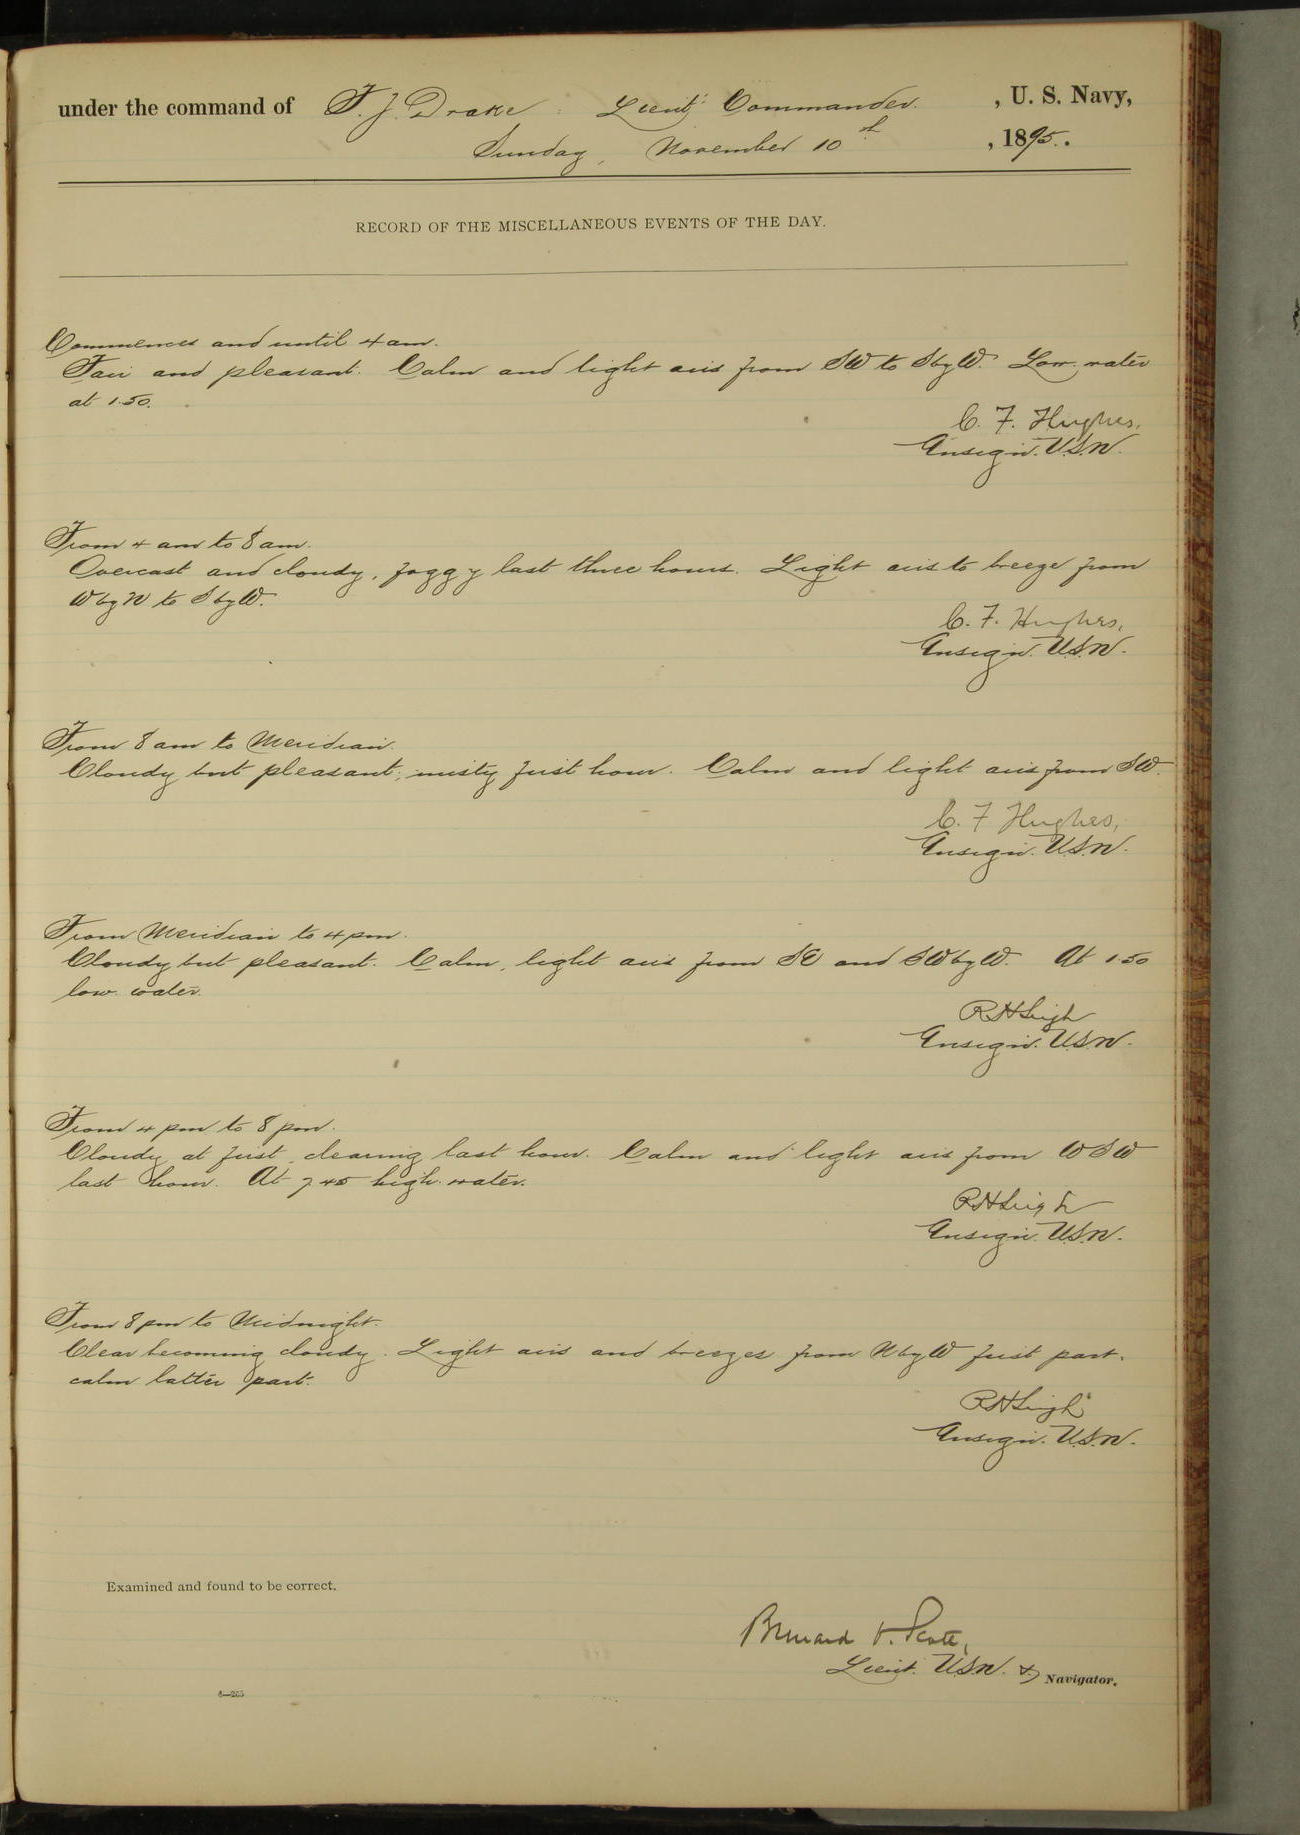 under the command of F. J. Drake Lieut. Commander. , U. S. Navy,
Sunday, November 10th , 1895.
RECORD OF THE MISCELLANEOUS EVENTS OF THE DAY.
Commences and until 4 am.
Fair and pleasant. Calm and light airs from SW to SbyW. Low water
at 1.50.
C. F. Hughes,
Ensign. U.S.N.
From 4 am to 8 am.
Overcast and cloudy, foggy last three hours. Light airs to breeze from
WbyN to SbyW.
C. F. Hughes,
Ensign. U.S.N.
From 8 am to Meridian.
Cloudy but pleasant; misty first hour. Calm and light airs from SW.
C. F Hughes,
Ensign. U.S.N.
From Meridian to 4 pm.
Cloudy but pleasant. Calm, light airs from and SWbyW. At 1 50
low water.
R H Leigh
Ensign. U.S.N.
From 4 pm to 8 pm.
Cloudy at first, clearing last hour. Calm and light airs from WSW
last hour. At 7 45 high water.
R H Leigh
Ensign. U.S.N.
From 8 pm to Midnight.
Clear becoming cloudy. Light airs and breezes from NbyW first part.
calm latter part.
R H Leigh
Ensign. U.S.N.
Examined and found to be correct.
Lieut. U.S.N. & Navigator.
6—265